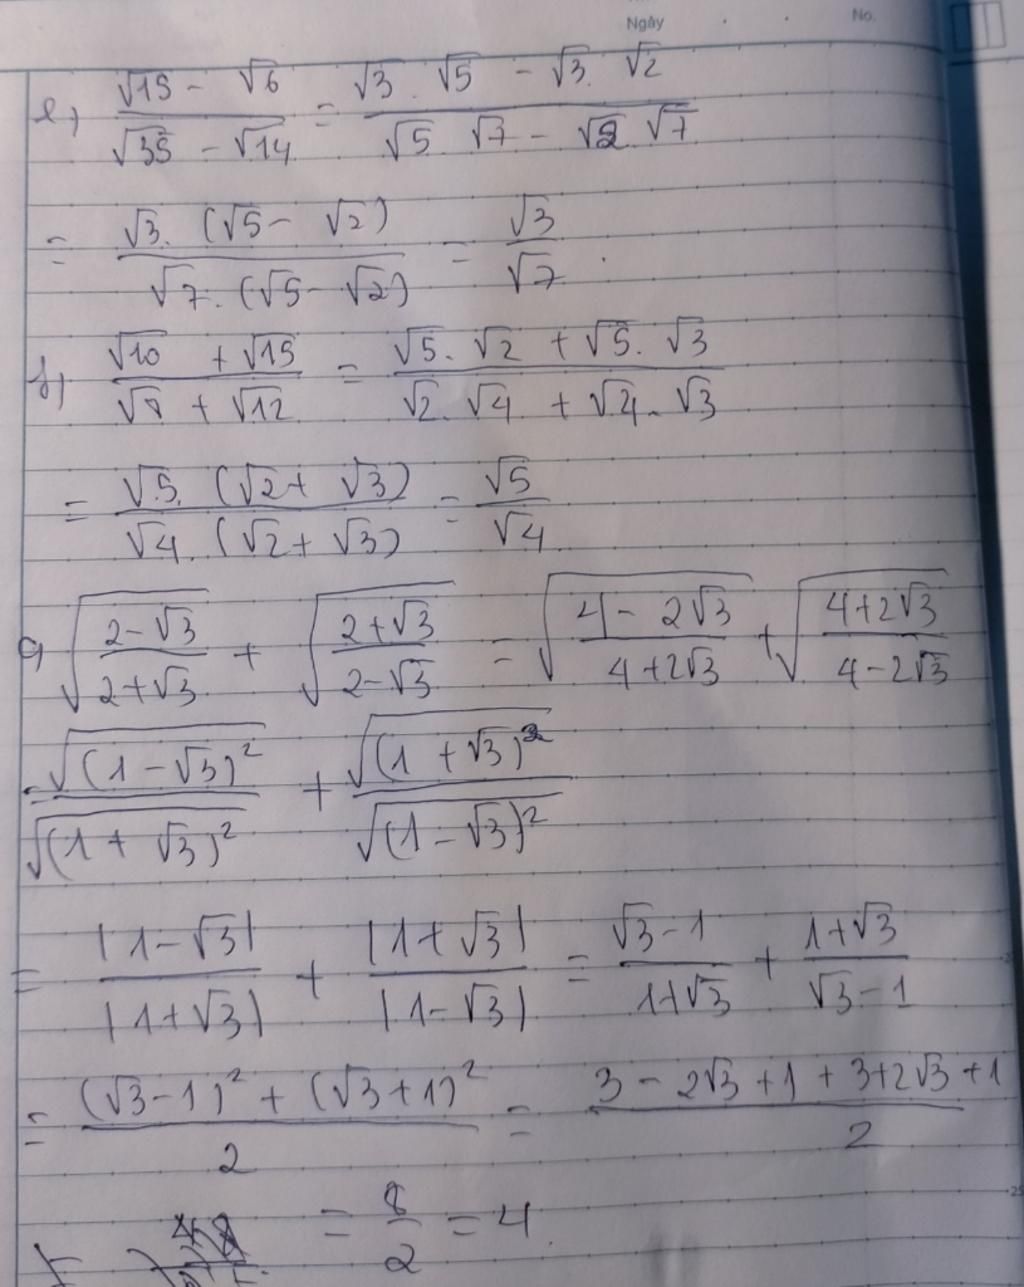 Ngày No.
e, (√15 - √6)/(√35 - √14) = (√3 . √5 - √3 . √2)/(√5 √7 - √2 √7)
= (√3. (√5 - √2))/(√7. (√5 - √2)) = √3/√7 .
f, (√10 + √15)/(√8 + √12) = (√5. √2 + √5. √3)/(√2. √4 + √4. √3)
= (√5. (√2 + √3))/(√4. (√2 + √3)) = √5/√4.
g, √((2-√3)/(2+√3)) + √((2+√3)/(2-√3)) = √((4 - 2√3)/(4+2√3)) + √((4+2√3)/(4-2√3))
= √((1-√3)²)/√((1+√3)²) + √((1+√3)²)/√((1-√3)²)
= |1-√3|/|1+√3| + |1+√3|/|1-√3| = (√3-1)/(1+√3) + (1+√3)/(√3-1)
= ((√3-1)² + (√3+1)²)/2 = (3 - 2√3 + 1 + 3+2√3 + 1)/2
= 8/2 = 4.